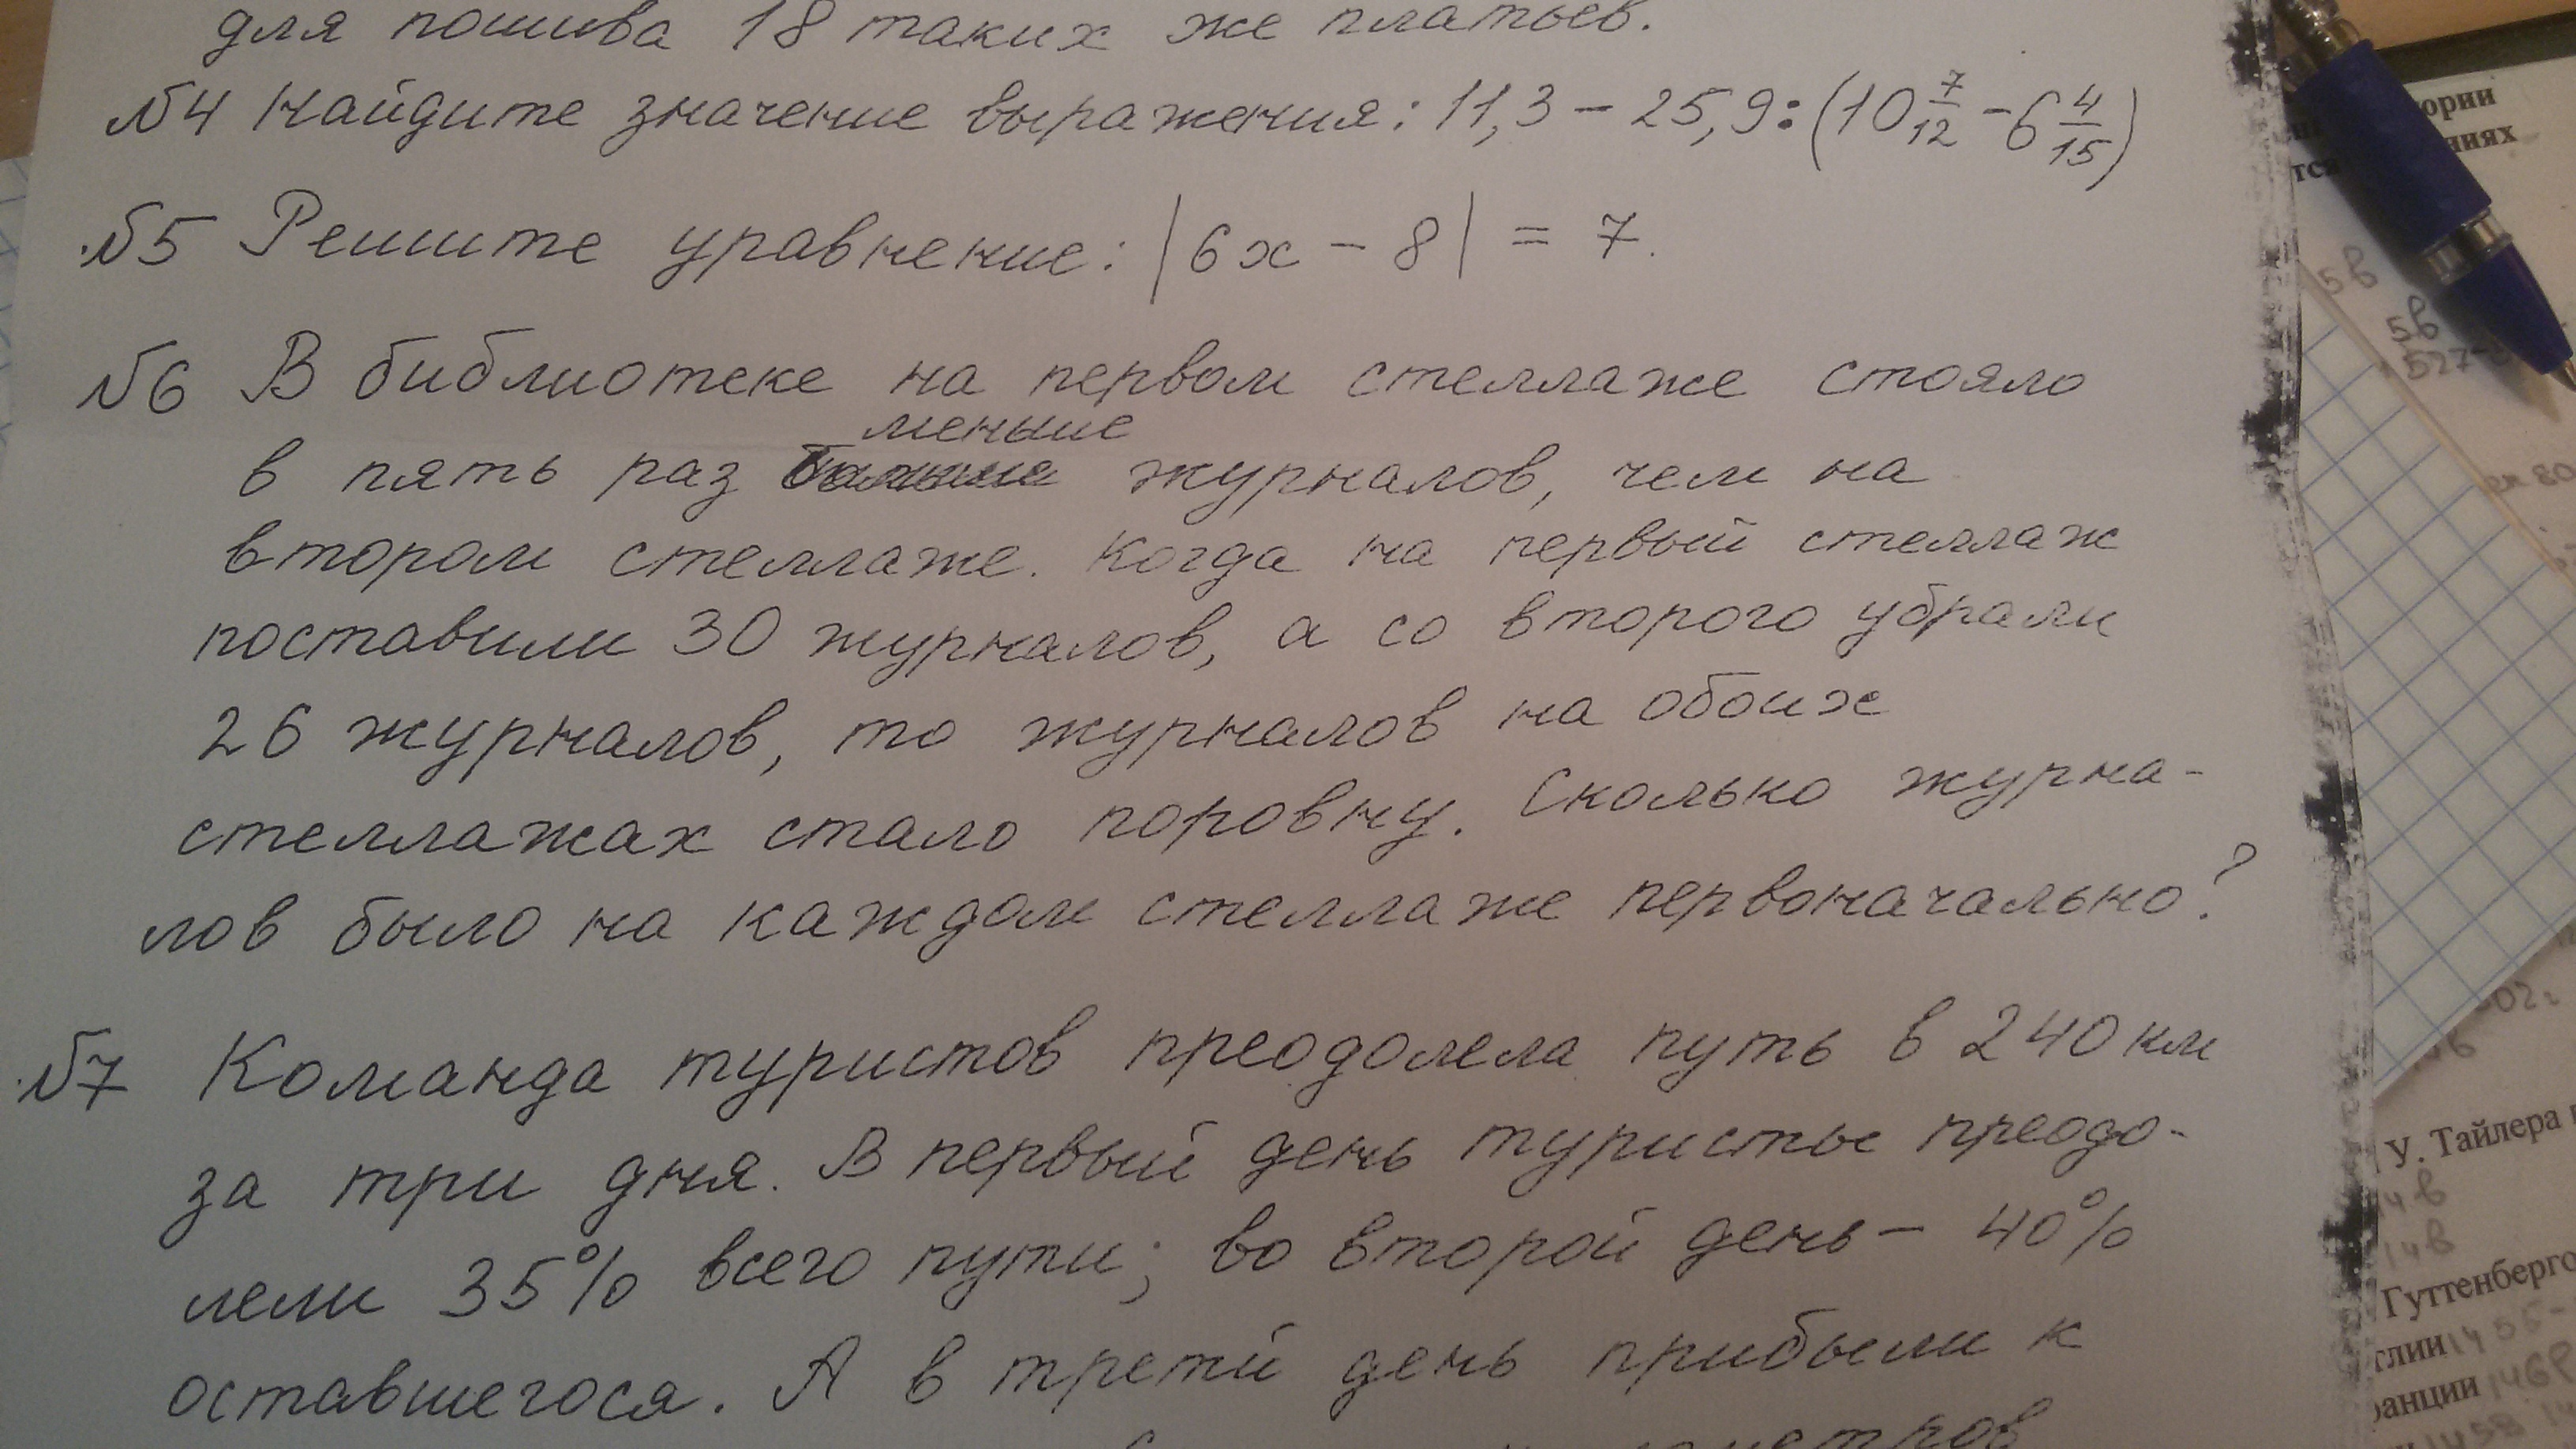 для пошива 18 таких же платьев.
№4 Найдите значение выражения: 11,3 - 25,9 : (10 7/12 - 6 4/15)
№5 Решите уравнение: |6х - 8| = 7.
№6 В библиотеке на первом стеллаже стояло
меньше
в пять раз журналов, чем на
втором стеллаже. Когда на первый стеллаж
поставили 30 журналов, а со второго убрали
26 журналов, то журналов на обоих
стеллажах стало поровну. Сколько журна-
лов было на каждом стеллаже первоначально?
№7 Команда туристов преодолела путь в 240 км
за три дня. В первый день туристы преодо-
лели 35% всего пути; во второй день - 40%
оставшегося. А в третий день прибыли к
ории
ниях
тся
5в
5в
527-
80
У. Тайлера
14в
14в
Гуттенберго
глии
ранции